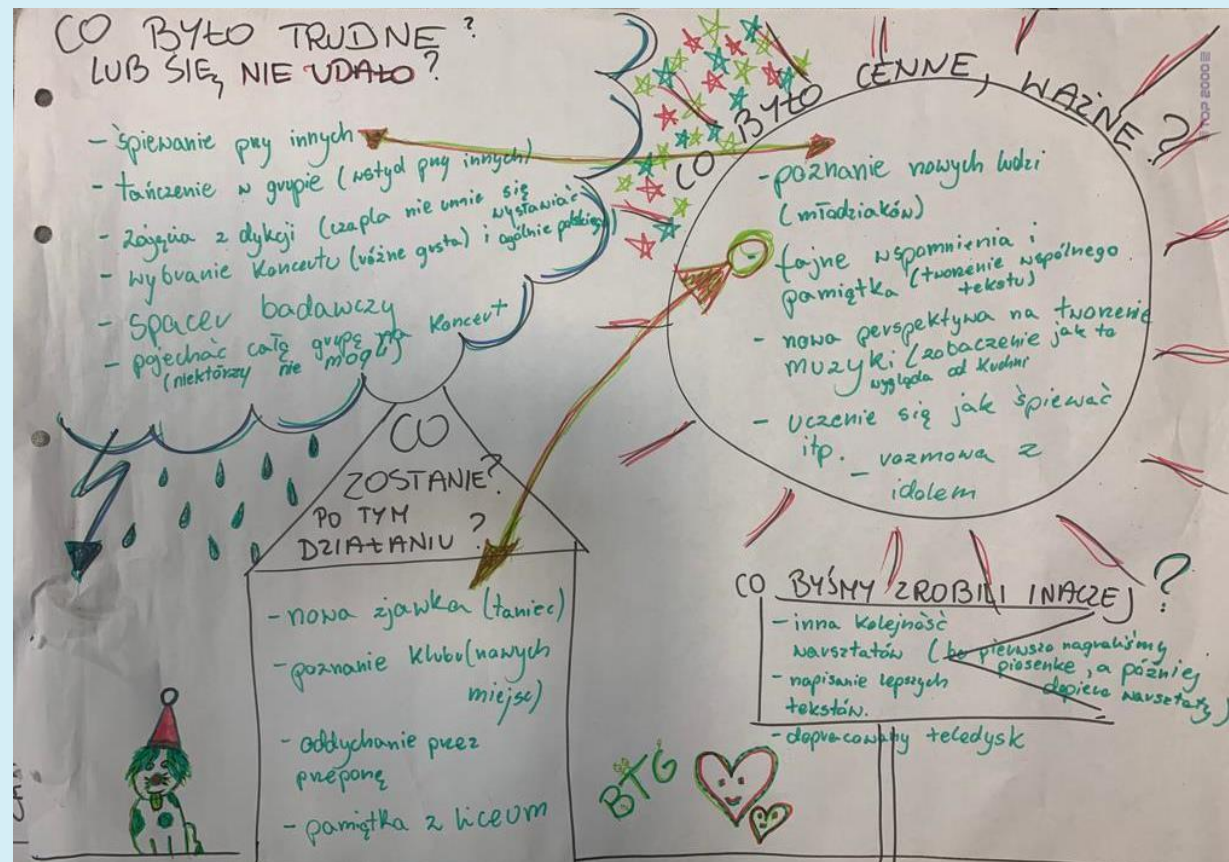 CO BYŁO TRUDNE?
LUB SIĘ NIE UDAŁO?
- śpiewanie przy innych
- tańczenie w grupie (wstyd przy innych)
- zajęcia z dykcji (czapla nie umie się wysławiać) i ogólnie polskiego
- wybranie koncertu (różne gusta)
- spacer badawczy
- pojechać całę grupę na koncert
(niektórzy nie mogli)
CO BYŁO CENNE, WAŻNE?
- poznanie nowych ludzi
(młodziaków)
- fajne wspomnienia i
pamiątka (tworzenie wspólnego
tekstu)
- nowa perspektywa na tworzenie
muzyki (zobaczenie jak to
wygląda od kuchni
- uczenie się jak śpiewać
itp.
- rozmowa z
idolem
CO
ZOSTANIE?
PO TYM
DZIAŁANIU?
- nowa zjawka (taniec)
- poznanie klubu (nowych
miejsc)
- oddychanie przez
przeponę
- pamiątka z liceum
CO BYŚMY ZROBILI INACZEJ?
- inna kolejność
warsztatów (bo pierwsze nagraliśmy
piosenke, a później
dopiero warsztaty)
- napisanie lepszych
tekstów.
- dopracowany teledysk
BTG
TOP 2000